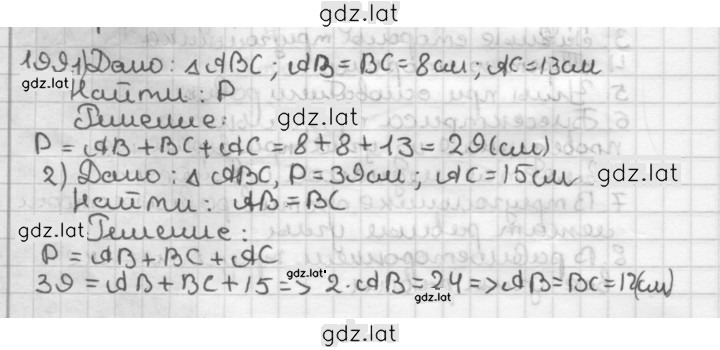 gdz.lat
199 1) Дано: △ABC; AB = BC = 8см; AC = 13см
gdz.lat
Найти: P
Решение:
gdz.lat
P = AB + BC + AC = 8 + 8 + 13 = 29(см)
2) Дано: △ABC, P = 39см; AC = 15см
gdz.lat
Найти: AB = BC
gdz.lat
Решение:
P = AB + BC + AC
39 = AB + BC + 15 => 2·AB = 24 => AB = BC = 12(см)
gdz.lat
gdz.lat
gdz.lat